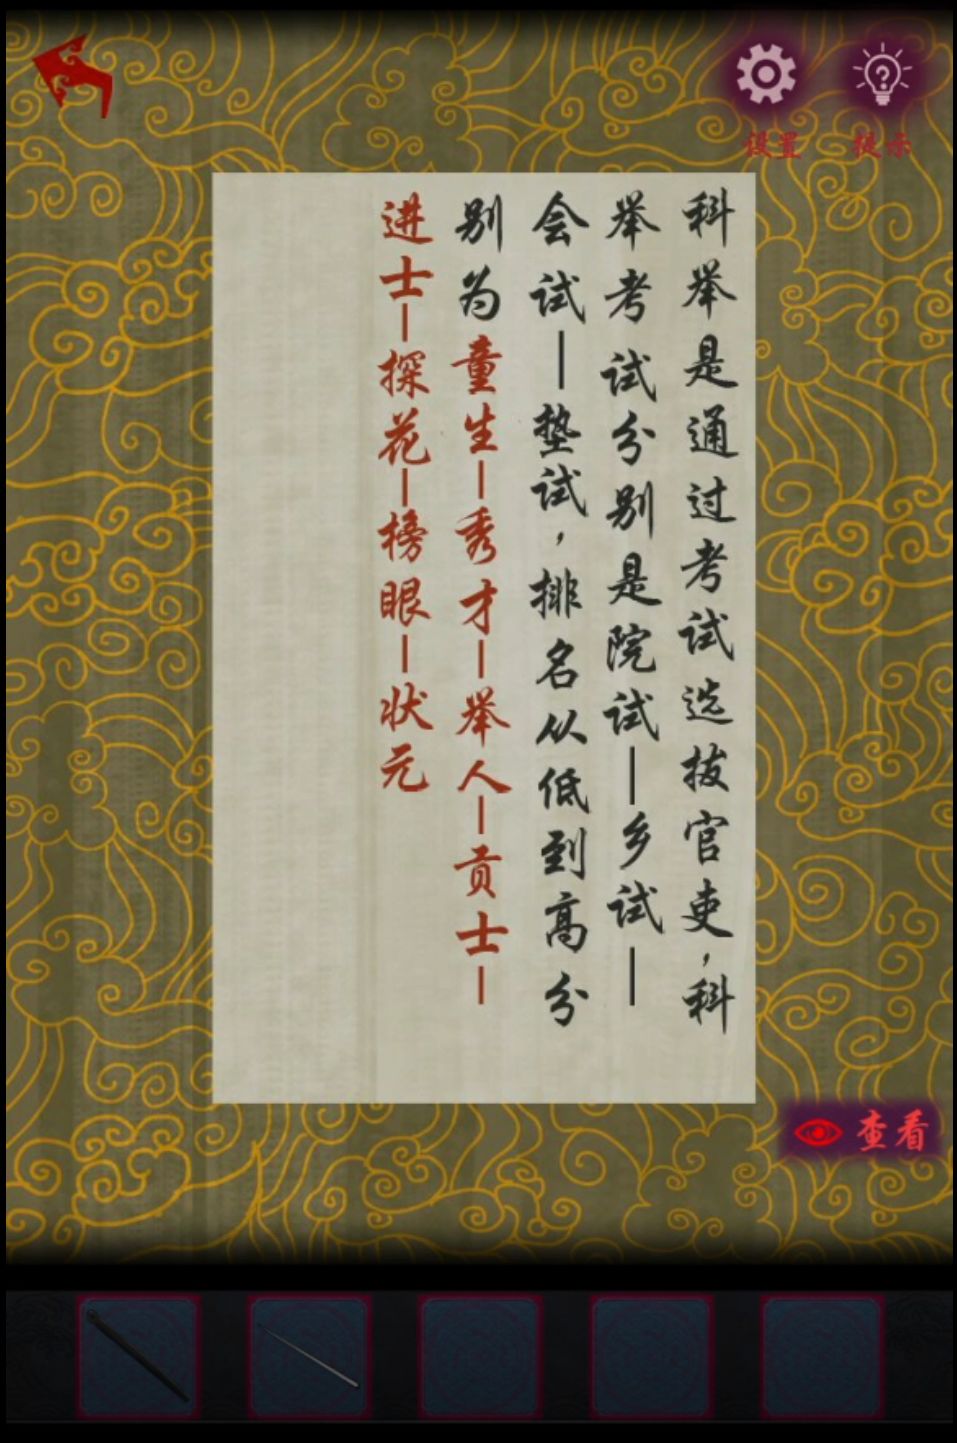 设置
提示
科举是通过考试选拔官吏，科
举考试分别是院试—乡试—
会试—垫试，排名从低到高分
别为童生—秀才—举人—贡士—
进士—探花—榜眼—状元
查看